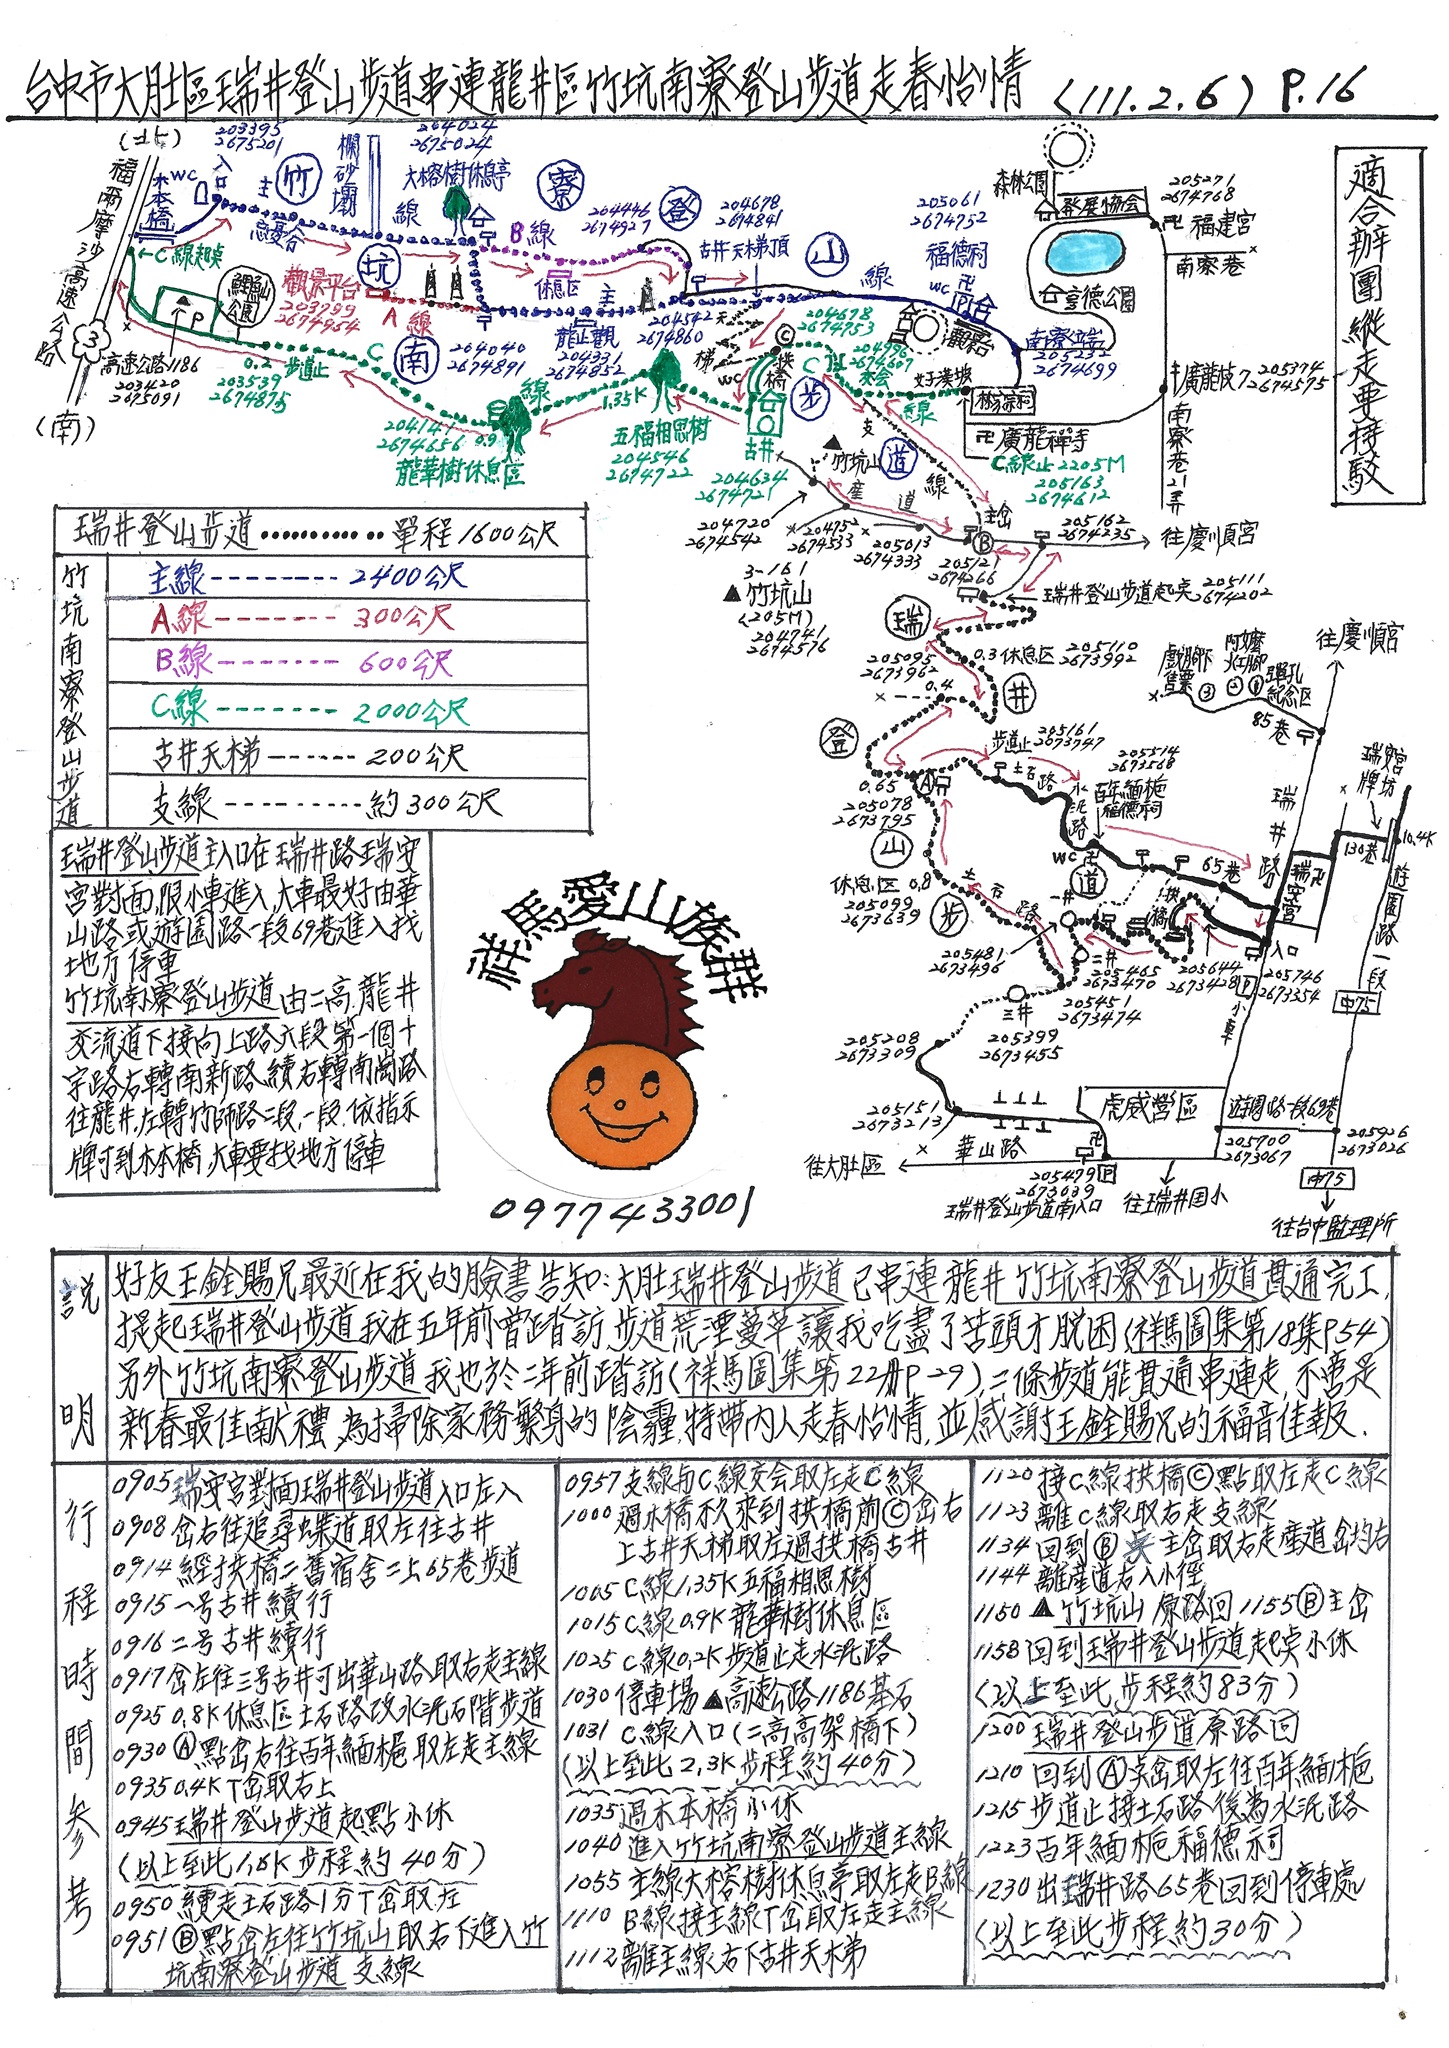 台中市大肚區瑞井登山步道串連龍井區竹坑南寮登山步道走春怡情 (111.2.6) P.16
適合辦團縱走要接駁
(北)
福爾摩沙高速公路
3
(南)
木本橋
WC
入口
203395
2675201
主
竹
攔砂壩
264024
2675024
大榕樹休息亭
線
寮
B線
204446
2674927
登
204678
2674841
古井天梯頂
山
205061
2674752
福德祠
線
WC
森林公園
發展協會
205271
2674768
福建宮
南寮巷
享德公園
C線起點
鯉魚山公園
P
觀景平台
203799
2674954
A線
坑
休息區
主
龍止觀
204331
2674852
204542
2674860
天
梯
204678
2674753
204996
2674607
交會
好漢坡
205232
2674699
高速公路1186
203420
2675091
0.2
步道止
203539
2674875
C
南
204040
2674891
線
204141
2674656
0.9
龍華樹休息區
1.35K
五福相思樹
204546
2674722
WC
拱橋
古井
204634
2674721
步
支
道
線
竹坑山
產
道
廣龍禪寺
C線止2205M
205163
2674612
廣龍坡7
205374
2674575
南寮巷21弄
204720
2674542
204752
2674533
205013
2674333
B
主岔
205121
2674266
205162
2674235
往慶順宮
3-161
竹坑山
(205M)
204741
2674576
瑞井登山步道起點
205111
2674202
瑞
205095
2673962
0.3休息區
205110
2673992
0.4
井
登
步道止
205161
2673747
A
0.65
205078
2673795
土石路
水泥路
205514
2673568
百年緬梔
福德祠
山
WC
道
65巷
休息區 0.8
205099
2673639
步
土石路
一井
拱橋
205481
2673496
二井
205465
2673470
205644
2673428
入口
205746
2673354
P小車
205451
2673474
三井
205399
2673455
205208
2673309
205151
2673213
往大肚區
華山路
虎威營區
205479
2673639
P
瑞井登山步道南入口
往瑞井國小
遊園路一段69巷
205700
2673067
205926
2673026
中75
往台中監理所
往慶順宮
85巷
瑞井路
瑞安宮
130巷
瑞安宮牌坊
10.4K
遊園路一段
中75
瑞井登山步道............單程1600公尺
竹坑南寮登山步道
主線--------2400公尺
A線-------300公尺
B線-------600公尺
C線-------2000公尺
古井天梯------200公尺
支線---------約300公尺
瑞井登山步道主入口在瑞井路瑞安
宮對面,限小車進入,大車最好由華
山路或遊園路一段69巷進入找
地方停車
竹坑南寮登山步道由二高龍井
交流道下接向上路六段第一個十
字路右轉南新路續右轉南崗路
往龍井,左轉竹師路二段,一段,依指示
牌可到木本橋,大車要找地方停車
祥馬愛山族群
0977433001
說明
好友王銓賜兄最近在我的臉書告知:大肚瑞井登山步道已串連龍井竹坑南寮登山步道貫通完工,
提起瑞井登山步道我在五年前曾踏訪,步道荒湮蔓草讓我吃盡了苦頭才脫困(祥馬圖集第18集P54)
另外竹坑南寮登山步道我也於二年前踏訪(祥馬圖集第22冊P29)二條步道能貫通串連走,不啻是
新春最佳獻禮,為掃除家務繁身的陰霾,特帶內人走春怡情,並感謝王銓賜兄的福音佳報.
行程時間參考
0905瑞安宮對面瑞井登山步道入口左入
0908岔右往追尋蝶道取左往古井
0914經拱橋二舊宿舍二上65巷步道
0915一号古井續行
0916二号古井續行
0917岔左往三号古井可出華山路取右走主線
0925 0.8K休息區土石路改水泥石階步道
0930Ⓐ點岔右往百年緬梔取左走主線
0935 0.4K T岔取右上
0945瑞井登山步道起點小休
(以上至此1.6K步程約40分)
0950續走土石路1分T岔取左
0951Ⓑ點岔左往竹坑山取右下進入竹
坑南寮登山步道支線
0957支線与C線交会取左走C線
1000過水橋不久來到拱橋前Ⓒ岔右
上古井天梯取左過拱橋古井
1005C線1.35K五福相思樹
1015C線0.9K龍華樹休息區
1025C線0.2K步道止走水泥路
1030停車場▲高速公路1186基石
1031C線入口(二高高架橋下)
(以上至此2.3K步程約40分)
1035過木本橋小休
1040進入竹坑南寮登山步道主線
1055主線大榕樹休息亭取左走B線
1110 B線接主線T岔取左走主線
1112離主線右下古井天梯
1120接C線拱橋Ⓒ點取左走C線
1123離C線取右走支線
1134回到Ⓑ主岔取右走產道岔均右
1144離產道右入小徑
1150▲竹坑山 原路回1155Ⓑ主岔
1158回到瑞井登山步道起點小休
(以上至此步程約83分)
1200瑞井登山步道原路回
1210回到Ⓐ點岔取左往百年緬梔
1215步道止接土石路後為水泥路
1223百年緬梔福德祠
1230出瑞井路65巷回到停車處
(以上至此步程約30分)